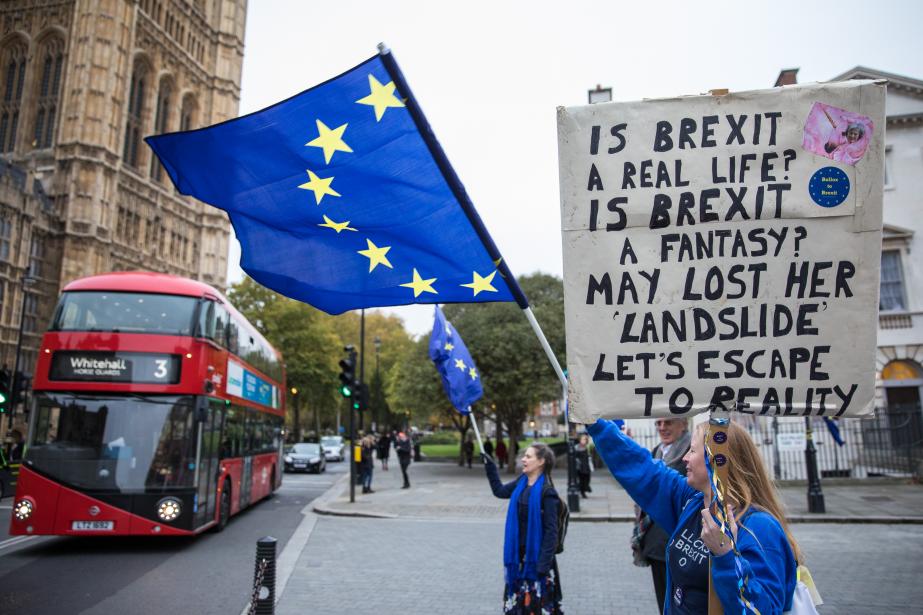 Whitehall
HORSE GUARDS
3
LTZ 1692
IS BREXIT
A REAL LIFE?
IS BREXIT
A FANTASY?
MAY LOST HER
'LANDSLIDE'
LET'S ESCAPE
TO REALITY
Bollox
to
Brexit
BREXIT